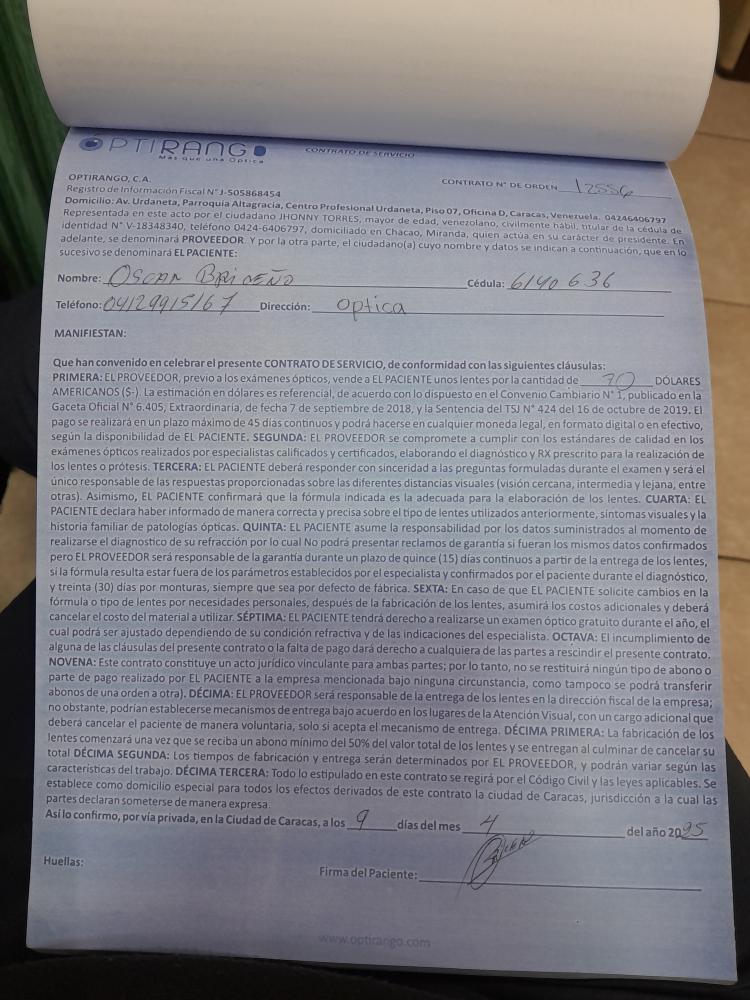 OPTIRANGO
Más que una Óptica
CONTRATO DE SERVICIO
OPTIRANGO, C.A.
CONTRATO N° DE ORDEN 12556
Registro de Información Fiscal N° J-505868454
Domicilio: Av. Urdaneta, Parroquia Altagracia, Centro Profesional Urdaneta, Piso 07, Oficina D, Caracas, Venezuela. 04246406797
Representada en este acto por el ciudadano JHONNY TORRES, mayor de edad, venezolano, civilmente hábil, titular de la cédula de
identidad N° V-18348340, teléfono 0424-6406797, domiciliado en Chacao, Miranda, quien actúa en su carácter de presidente. En
adelante, se denominará PROVEEDOR. Y por la otra parte, el ciudadano(a) cuyo nombre y datos se indican a continuación, que en lo
sucesivo se denominará EL PACIENTE:
Nombre: OSCAR BRICEÑO Cédula: 6140636
Teléfono: 04129915167 Dirección: Optica
MANIFIESTAN:
Que han convenido en celebrar el presente CONTRATO DE SERVICIO, de conformidad con las siguientes cláusulas:
PRIMERA: EL PROVEEDOR, previo a los exámenes ópticos, vende a EL PACIENTE unos lentes por la cantidad de 70 DÓLARES
AMERICANOS ($-). La estimación en dólares es referencial, de acuerdo con lo dispuesto en el Convenio Cambiario N° 1, publicado en la
Gaceta Oficial N° 6.405, Extraordinaria, de fecha 7 de septiembre de 2018, y la Sentencia del TSJ N° 424 del 16 de octubre de 2019. El
pago se realizará en un plazo máximo de 45 días continuos y podrá hacerse en cualquier moneda legal, en formato digital o en efectivo,
según la disponibilidad de EL PACIENTE. SEGUNDA: EL PROVEEDOR se compromete a cumplir con los estándares de calidad en los
exámenes ópticos realizados por especialistas calificados y certificados, elaborando el diagnóstico y RX prescrito para la realización de
los lentes o prótesis. TERCERA: EL PACIENTE deberá responder con sinceridad a las preguntas formuladas durante el examen y será el
único responsable de las respuestas proporcionadas sobre las diferentes distancias visuales (visión cercana, intermedia y lejana, entre
otras). Asimismo, EL PACIENTE confirmará que la fórmula indicada es la adecuada para la elaboración de los lentes. CUARTA: EL
PACIENTE declara haber informado de manera correcta y precisa sobre el tipo de lentes utilizados anteriormente, síntomas visuales y la
historia familiar de patologías ópticas. QUINTA: EL PACIENTE asume la responsabilidad por los datos suministrados al momento de
realizarse el diagnostico de su refracción por lo cual No podrá presentar reclamos de garantía si fueran los mismos datos confirmados
pero EL PROVEEDOR será responsable de la garantía durante un plazo de quince (15) días continuos a partir de la entrega de los lentes,
si la fórmula resulta estar fuera de los parámetros establecidos por el especialista y confirmados por el paciente durante el diagnóstico,
y treinta (30) días por monturas, siempre que sea por defecto de fábrica. SEXTA: En caso de que EL PACIENTE solicite cambios en la
fórmula o tipo de lentes por necesidades personales, después de la fabricación de los lentes, asumirá los costos adicionales y deberá
cancelar el costo del material a utilizar. SÉPTIMA: EL PACIENTE tendrá derecho a realizarse un examen óptico gratuito durante el año, el
cual podrá ser ajustado dependiendo de su condición refractiva y de las indicaciones del especialista. OCTAVA: El incumplimiento de
alguna de las cláusulas del presente contrato o la falta de pago dará derecho a cualquiera de las partes a rescindir el presente contrato.
NOVENA: Este contrato constituye un acto jurídico vinculante para ambas partes; por lo tanto, no se restituirá ningún tipo de abono o
parte de pago realizado por EL PACIENTE a la empresa mencionada bajo ninguna circunstancia, como tampoco se podrá transferir
abonos de una orden a otra). DÉCIMA: EL PROVEEDOR será responsable de la entrega de los lentes en la dirección fiscal de la empresa;
no obstante, podrían establecerse mecanismos de entrega bajo acuerdo en los lugares de la Atención Visual, con un cargo adicional que
deberá cancelar el paciente de manera voluntaria, solo si acepta el mecanismo de entrega. DÉCIMA PRIMERA: La fabricación de los
lentes comenzará una vez que se reciba un abono mínimo del 50% del valor total de los lentes y se entregan al culminar de cancelar su
total DÉCIMA SEGUNDA: Los tiempos de fabricación y entrega serán determinados por EL PROVEEDOR, y podrán variar según las
características del trabajo. DÉCIMA TERCERA: Todo lo estipulado en este contrato se regirá por el Código Civil y las leyes aplicables. Se
establece como domicilio especial para todos los efectos derivados de este contrato la ciudad de Caracas, jurisdicción a la cual las
partes declaran someterse de manera expresa.
Así lo confirmo, por vía privada, en la Ciudad de Caracas, a los 9 días del mes 4 del año 2025
Huellas:
Firma del Paciente:
www.optirango.com